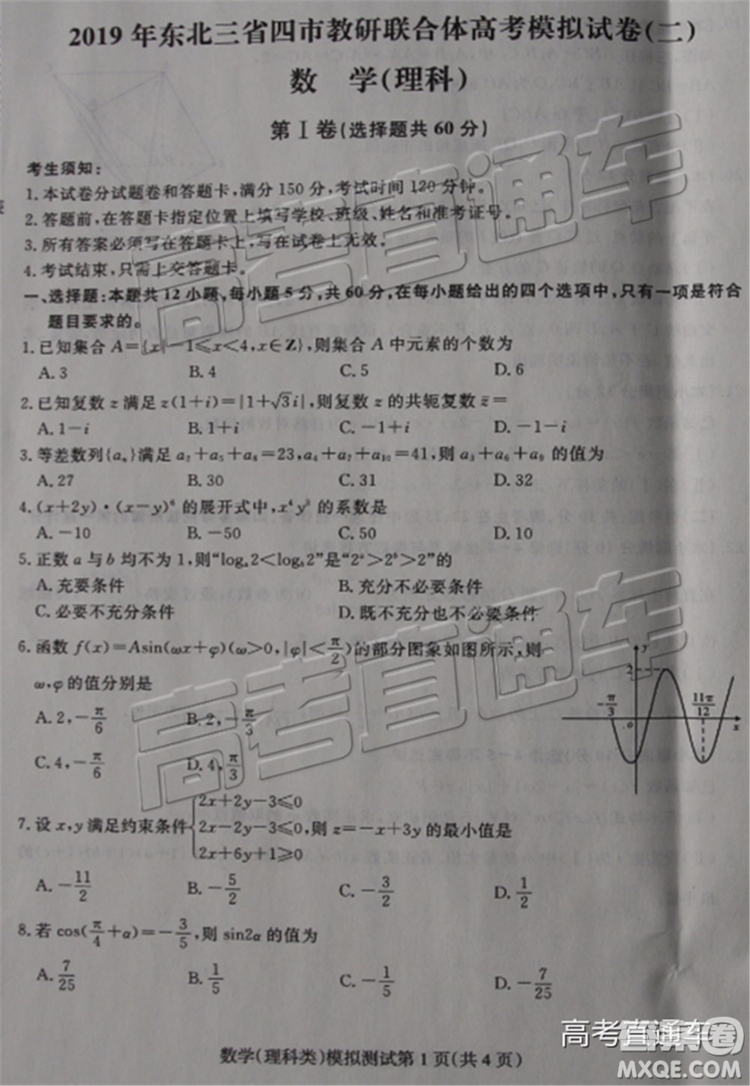 2019 年东北三省四市教研联合体高考模拟试卷(二)
数 学(理科)
第Ⅰ卷(选择题共 60 分)
考生须知:
1.本试卷分试题卷和答题卡,满分 150 分,考试时间 120 分钟。
2.答题前,在答题卡指定位置上填写学校、班级、姓名和准考证号。
3.所有答案必须写在答题卡上,写在试卷上无效。
4.考试结束,只需上交答题卡。
一、选择题:本题共 12 小题,每小题 5 分,共 60 分,在每小题给出的四个选项中,只有一项是符合
题目要求的。
1.已知集合 A={x|-1≤x<4,x∈Z},则集合 A 中元素的个数为
A.3 B.4 C.5 D.6
2.已知复数 z 满足 z(1+i)=|1+√3i|,则复数 z 的共轭复数 z̄=
A.1-i B.1+i C.-1+i D.-1-i
3.等差数列{aₙ}满足 a₂+a₅+a₈=23,a₄+a₇+a₁₀=41,则 a₃+a₆+a₉ 的值为
A.27 B.30 C.31 D.32
4.(x+2y)·(x-y)⁶ 的展开式中,x⁴y³ 的系数是
A.-10 B.-50 C.50 D.10
5.正数 a 与 b 均不为 1,则“logₐ2<log_b2”是“2ᵃ>2ᵇ>2”的
A.充要条件 B.充分不必要条件
C.必要不充分条件 D.既不充分也不必要条件
6.函数 f(x)=Asin(ωx+φ)(ω>0,|φ|<π/2)的部分图象如图所示,则
ω,φ 的值分别是
A.2,-π/6 B.2,-π/3
C.4,-π/6 D.4,π/3
y
2
-π/3 o 11π/12 x
7.设 x,y 满足约束条件{2x+2y-3≤0
2x-2y-3≤0
2x+6y+1≥0,则 z=-x+3y 的最小值是
A.-11/2 B.-5/2 C.-3/2 D.1/2
8.若 cos(π/4+α)=-3/5,则 sin2α 的值为
A.7/25 C.-1/5
数学(理科类)模拟测试第 1 页(共 4 页)
高考直通车
高考直通车
高考直通车
答案圈
MXQE.COM